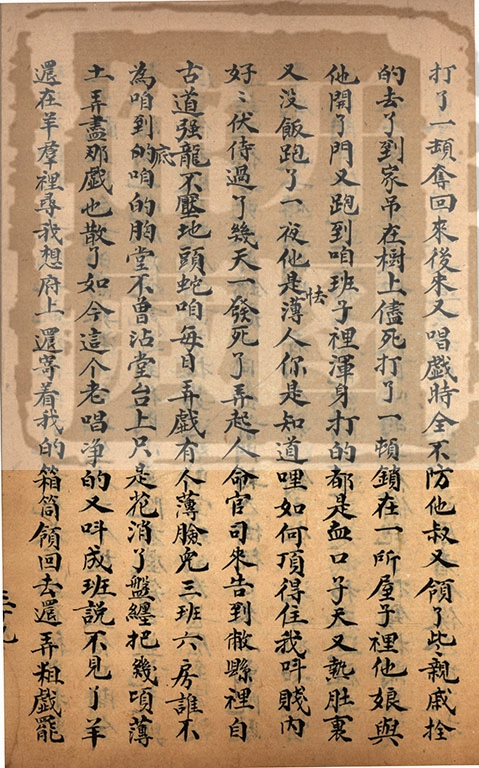 打了一頓奪回來後來又唱戲時全不防他叔又領了些親戚拴
的去了到家吊在樹上儘死打了一頓鎖在一所屋子裡他娘與
他開了門又跑到咱班子裡渾身打的都是血口子天又熱肚裏
又沒飯跑了一夜他是薄怯人你是知道哩如何頂得住我呌賤內
好〻伏侍過了幾天一發死了弄起人命官司來告到敝縣裡自
古道強龍不壓地頭蛇咱每日弄戲有个薄臉兒三班六房誰不
為咱到的底咱的胸堂不曾沾堂台上只是花消了盤纏把幾項薄
土弄盡那戲也散了如今這个老唱净的又呌成班說不見了羊
還在羊羣裡尋我想府上還寄着我的箱筒領回去還弄粗戲罷